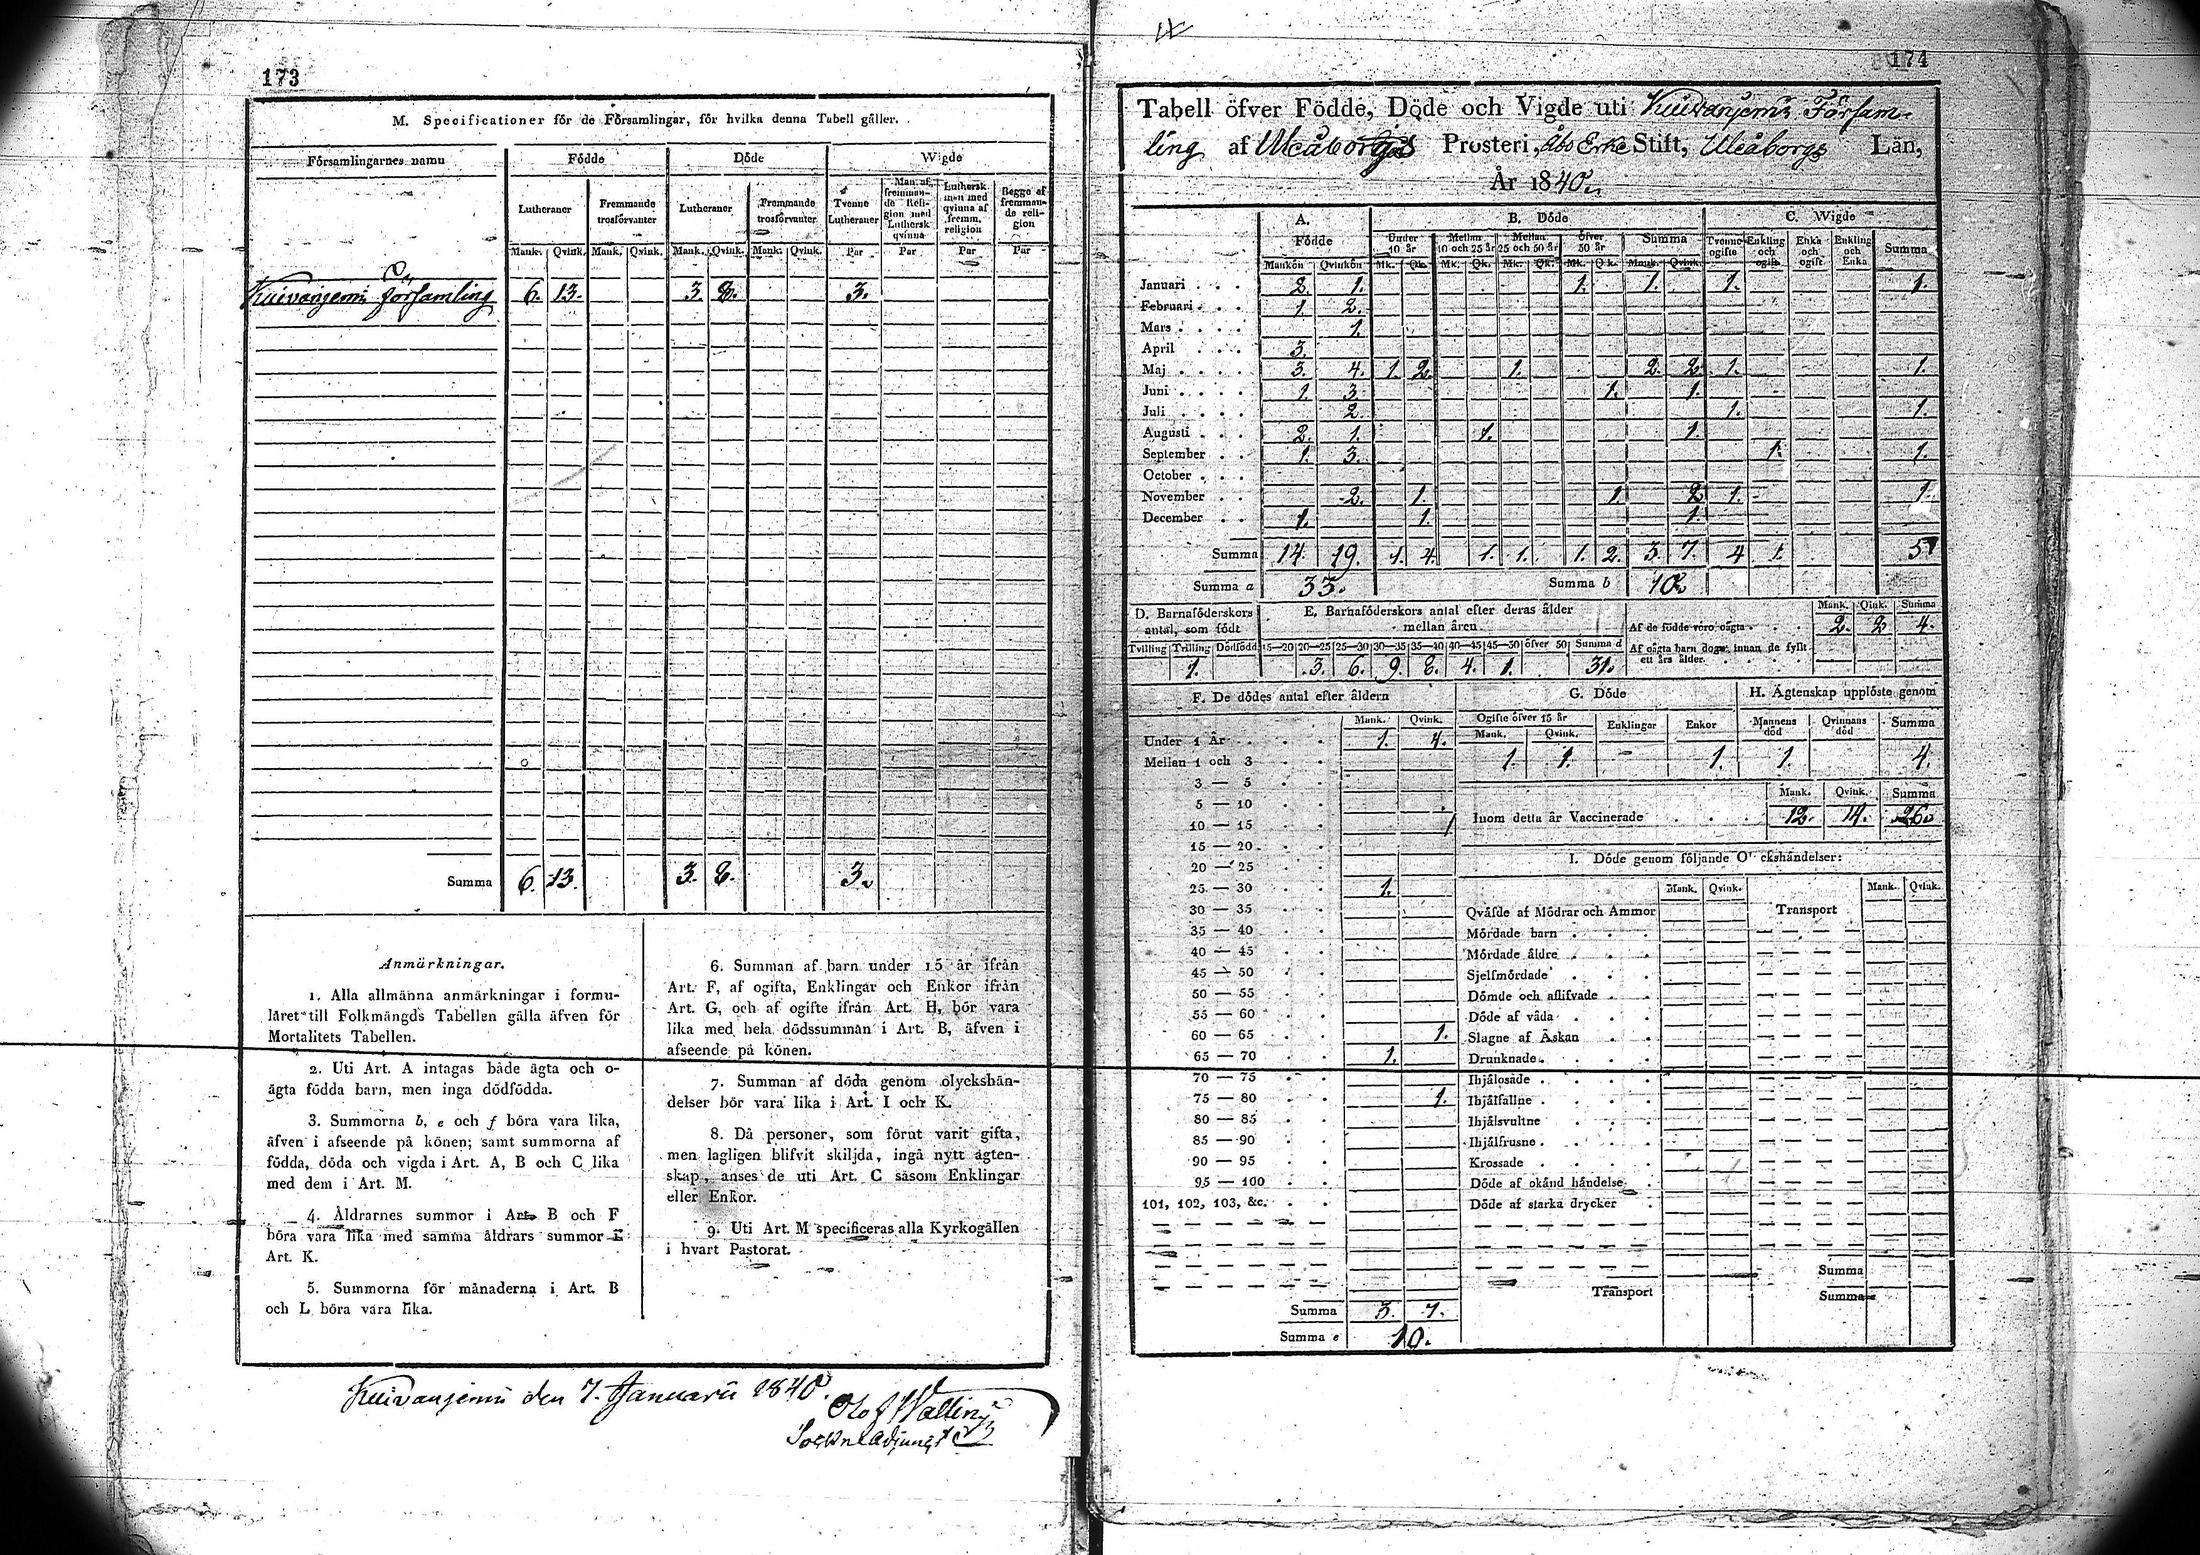 173
M. Specificationer för de Församlingar, för hvilka denna Tabell gäller.
Församlingarnes namn Födde Döde Wigde
Lutheraner Fremmande trosförvanter Lutheraner Fremmande trosförvanter Tvenne Lutheraner Man af fremmande Religion med Luthersk qvinna Luthersk man med qvinna af fremm. religion Begge af fremmande religion
Mank. Qvink. Mank. Qvink. Mank. Qvink. Mank. Qvink. Par Par Par Par
Kuivaniemi församling 6. 13. 3. 8. 3.
Summa 6. 13. 3. 8. 3.
Anmärkningar.
1. Alla allmänna anmärkningar i formu-
läret till Folkmängds Tabellen gälla äfven för
Mortalitets Tabellen.
2. Uti Art. A intagas både ägta och o-
ägta födda barn, men inga dödfödda.
3. Summorna b, e och f böra vara lika,
äfven i afseende på könen; samt summorna af
födda, döda och vigda i Art. A, B och C lika
med dem i Art. M.
4. Åldrarnes summor i Art. B och F
böra vara lika med samma åldrars summor i
Art. K.
5. Summorna för månaderna i Art. B
och L böra vara lika.
6. Summan af barn under 15 år ifrån
Art. F, af ogifta, Enklingar och Enkor ifrån
Art. G, och af ogifte ifrån Art. H, bör vara
lika med hela dödssumman i Art. B, äfven i
afseende på könen.
7. Summan af döda genom olyckshän-
delser bör vara lika i Art. I och K.
8. Då personer, som förut varit gifta,
men lagligen blifvit skiljda, ingå nytt ägten-
skap, anses de uti Art. C såsom Enklingar
eller Enkor.
9. Uti Art. M specificeras alla Kyrkogällen
i hvart Pastorat.
Kuivaniemi den 7. Januarii 1840.
Olof Wallin
Sockneadjunct
174
Tabell öfver Födde, Döde och Vigde uti Kuivaniemi Försam-
ling af Uleåborgs Prosteri, Åbo Erke Stift, Uleåborgs Län,
År 1840.
A. Födde B. Döde C. Wigde
Under 10 år Mellan 10 och 25 år Mellan 25 och 50 år Öfver 50 år Summa Tvenne ogifte Enkling och ogift Enka och ogift Enkling och Enka Summa
Mankön Qvinkön Mk. Qk. Mk. Qk. Mk. Qk. Mk. Qk. Mank. Qvink.
Januari 2. 1. 1. 1. 1. 1.
Februari 1. 2.
Mars 1.
April 3.
Maj 3. 4. 1. 2. 1. 2. 2. 1. 1.
Juni 1. 3. 1. 1.
Juli 2. 1. 1.
Augusti 2. 1. 1. 1.
September 1. 3. 1. 1.
October
November 2. 1. 1. 2 1. 1.
December 1. 1. 1.
Summa 14. 19. 1. 4. 1. 1. 1. 2. 3. 7. 4 1. 5
Summa a 33. Summa b 10.
D. Barnaföderskors antal, som födt
Tvilling Trilling Dödfödd
1.
E. Barnaföderskors antal efter deras ålder
mellan åren
15—20 20—25 25—30 30—35 35—40 40—45 45—50 öfver 50 Summa d
3. 6. 9. 8. 4. 1. 31.
Mank. Qink. Summa
Af de födde voro oägta 2. 2 4.
Af oägta barn dogo innan de fyllt
ett års ålder.
F. De dödes antal efter åldern
Mank. Qvink.
Under 1 År 1. 4.
Mellan 1 och 3
3 — 5
5 — 10
10 — 15
15 — 20
20 — 25
25 — 30 1.
30 — 35
35 — 40
40 — 45
45 — 50
50 — 55
55 — 60
60 — 65 1.
65 — 70 1.
70 — 75
75 — 80 1.
80 — 85
85 — 90
90 — 95
95 — 100
101, 102, 103, &c.
Summa 3. 7.
Summa e 10.
G. Döde
Ogifte öfver 15 år Enklingar Enkor
Mank. Qvink.
1. 1. – 1.
H. Ägtenskap upplöste genom
Mannens död Qvinnans död Summa
1.
Mank. Qvink. Summa
Inom detta år Vaccinerade 12. 14. 26.
I. Döde genom följande O ckshändelser:
Mank. Qvink. Mank. Qvink.
Qväfde af Mödrar och Ammor Transport
Mördade barn
Mördade äldre
Sjelfmördade
Dömde och aflifvade
Döde af våda
Slagne af Åskan
Drunknade
Ihjälosade
Ihjälfallne
Ihjälsvultne
Ihjälfrusne
Krossade
Döde af okänd händelse
Döde af starka drycker
Summa
Transport Summa